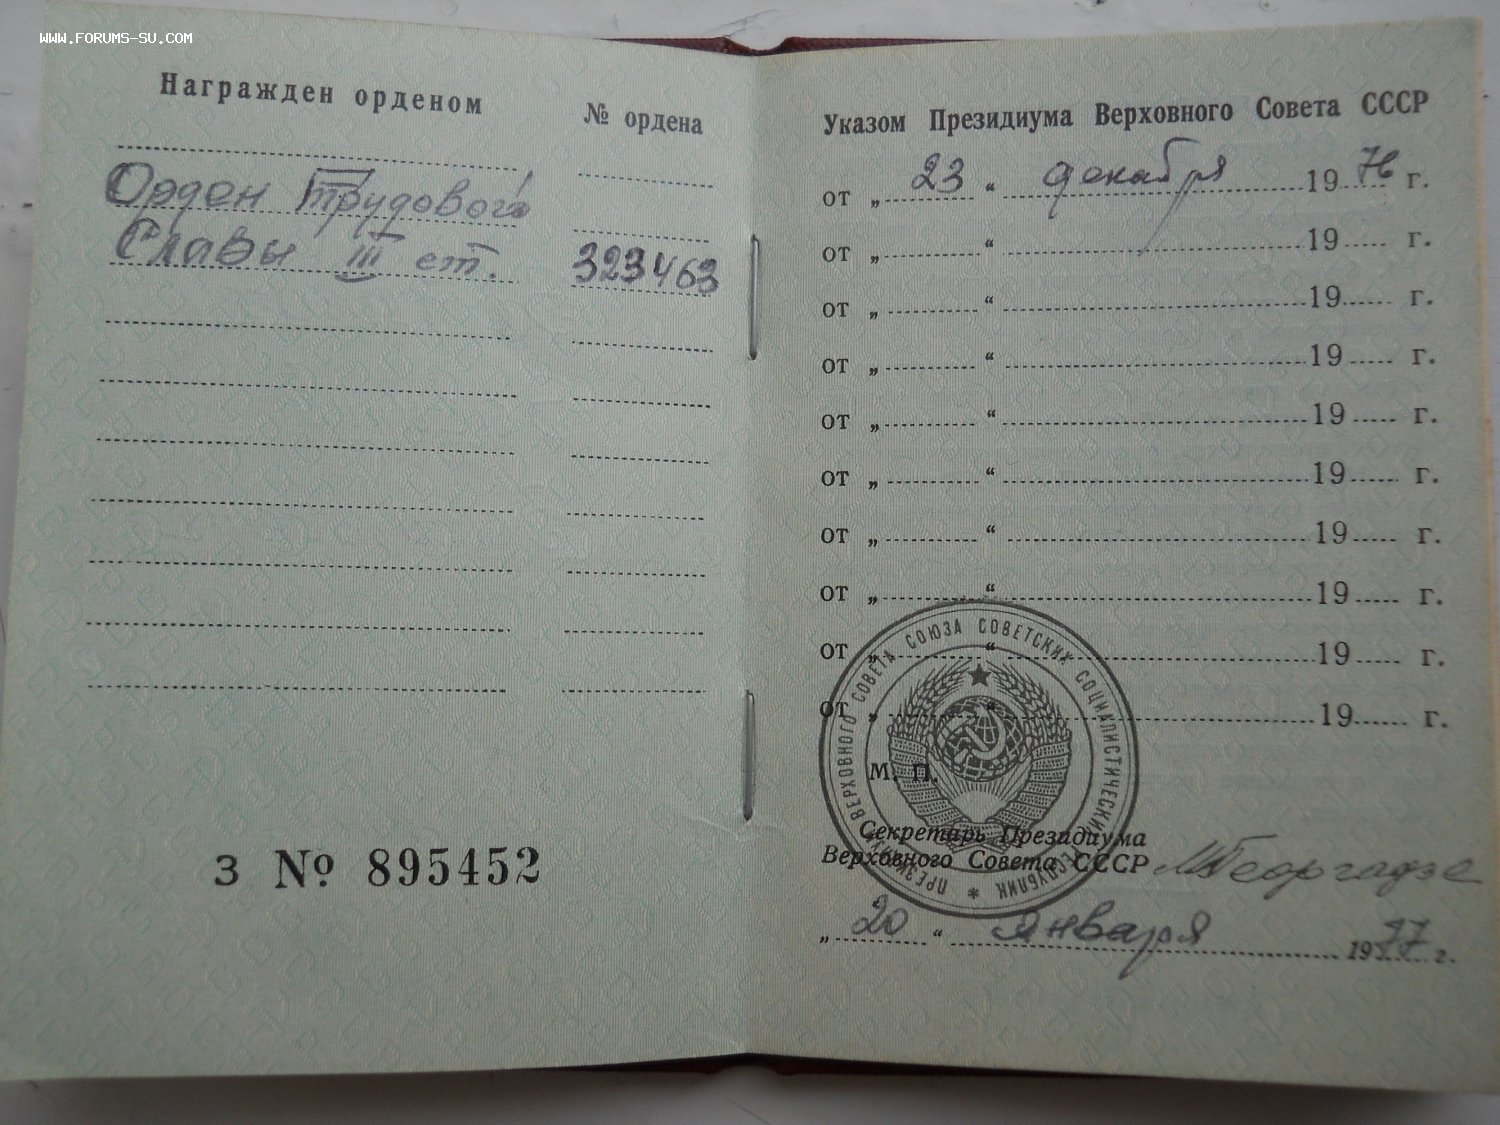 WWW.FORUMS-SU.COM
Награжден орденом
№ ордена
Орден Трудового
Славы III ст.
323463
З № 895452
Указом Президиума Верховного Совета СССР
от „ 23 “ декабря 1976 г.
от „ “ 19 г.
от „ “ 19 г.
от „ “ 19 г.
от „ “ 19 г.
от „ “ 19 г.
от „ “ 19 г.
от „ “ 19 г.
от „ “ 19 г.
от „ “ 19 г.
М. П.
ПРЕЗИДИУМ ВЕРХОВНОГО СОВЕТА СОЮЗА СОВЕТСКИХ СОЦИАЛИСТИЧЕСКИХ РЕСПУБЛИК *
Секретарь Президиума
Верховного Совета СССР М Георгадзе
„ 20 “ января 1977 г.